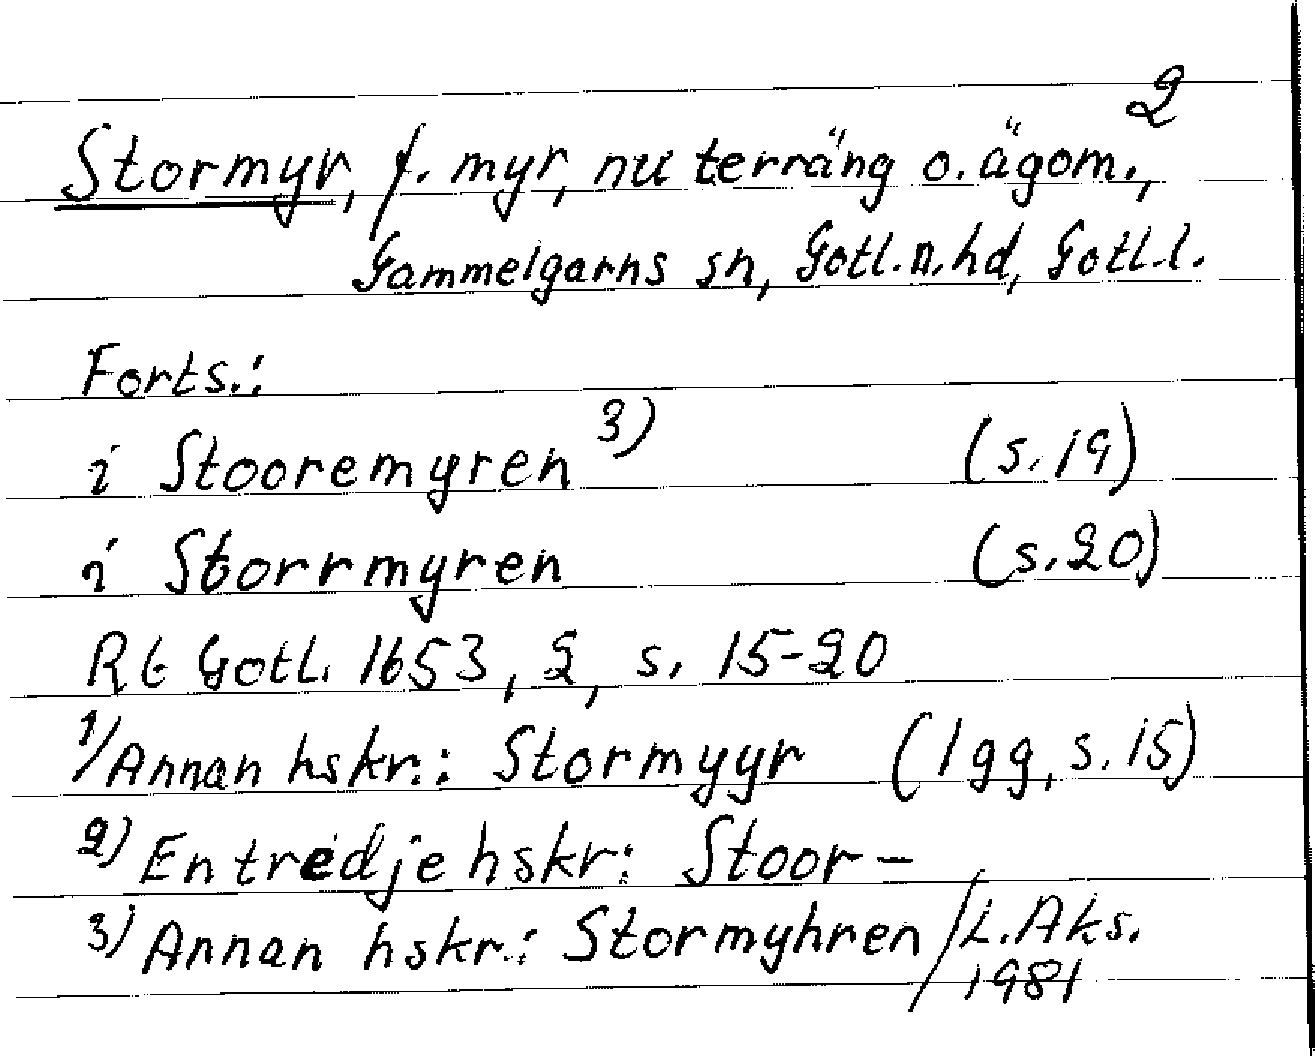 2
Stormyr, f. myr, nu terräng o. ägom.,
Gammelgarns sn, Gotl.n.hd, Gotl.l.
Forts.:
i Stooremyren 3) (s.19)
i Storrmyren (s.20)
Rt Gotl. 1653, 2, s. 15-20
1) Annan hskr.: Stormyyr (1 gg, s.15)
2) En tredje hskr: Stoor-
3) Annan hskr.: Stormyhren / L.Aks.
1981